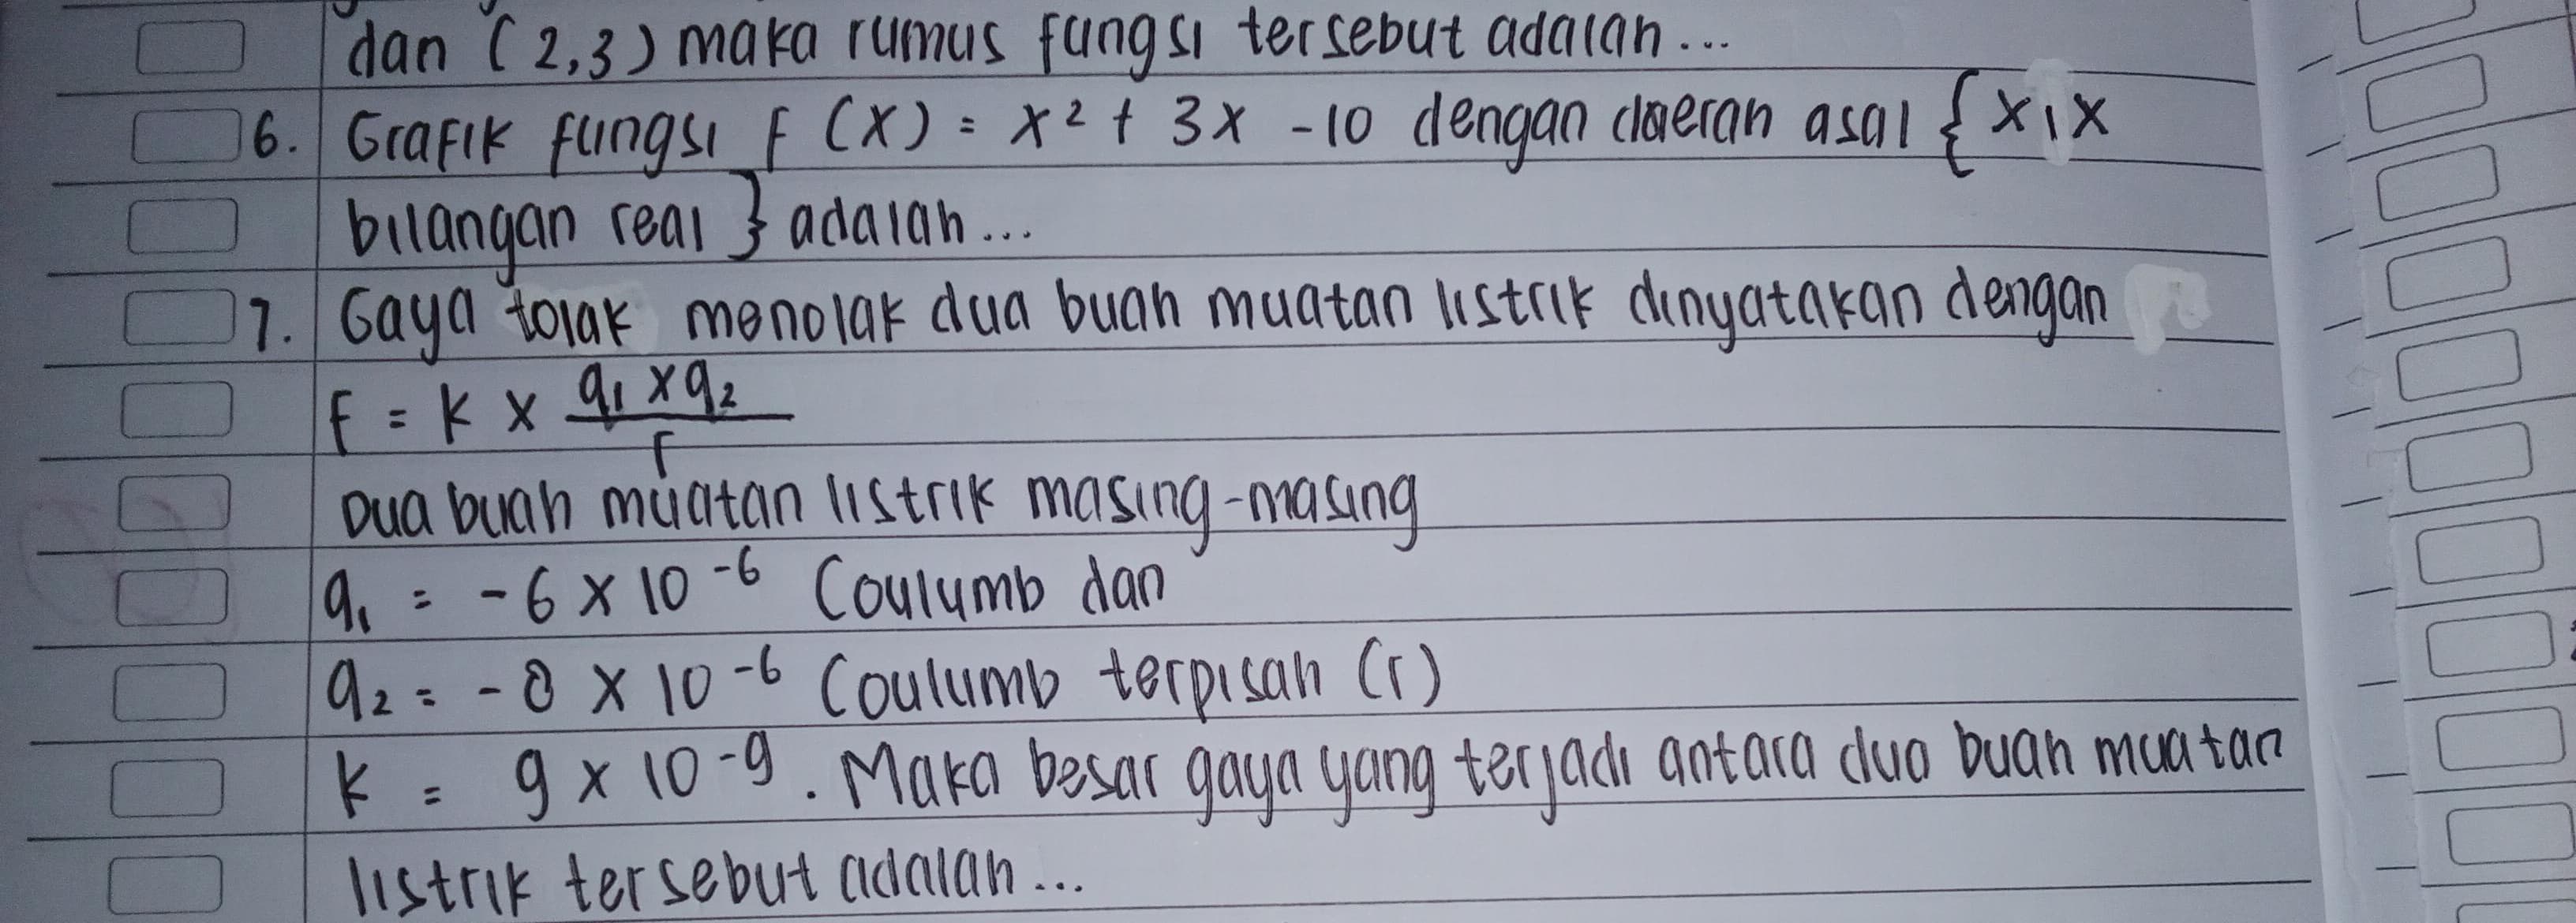 dan (2,3) maka rumus fungsi tersebut adalah...
6. Grafik fungsi f (x) = x² + 3x - 10 dengan daerah asal { x | x
bilangan real } adalah...
7. Gaya tolak menolak dua buah muatan listrik dinyatakan dengan
F = k x q₁ x q₂ / r
Dua buah muatan listrik masing-masing
q₁ = - 6 x 10⁻⁶ Coulumb dan
q₂ = - 8 x 10⁻⁶ Coulumb terpisah (r)
k = 9 x 10⁻⁹. Maka besar gaya yang terjadi antara dua buah muatan
listrik tersebut adalah...